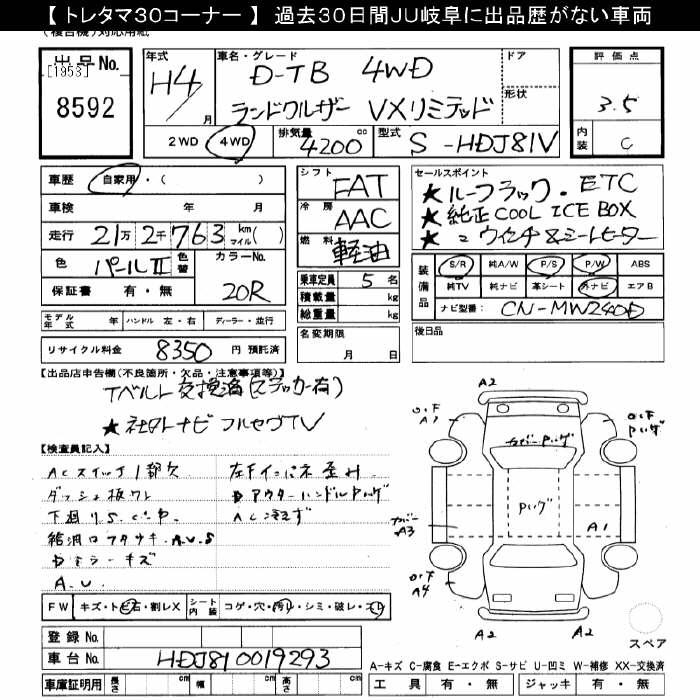 【トレタマ30コーナー】 過去30日間JU岐阜に出品歴がない車両
出品No. [1953] 8592
年式 H4 月
車名・グレード D-TB 4WD
ランドクルザー VXリミテッド
ドア
形状
評価点 3.5
内装 C
2WD 4WD 排気量 4200 cc 型式 S-HDJ81V
車歴 自家用・( )
車検 年 月
走行 21万2千763 km マイル( )
色 パールII 色替 カラーNo. 20R
保証書 有・無
モデル年式 年 ハンドル 左・右 ディーラー・並行
リサイクル料金 8350 円 預託済
シフト FAT
冷房 AAC
燃料 軽油
乗車定員 5 名
積載量 kg
総重量 kg
名変期限
月 日
セールスポイント
★ルーフラック・ETC
★純正COOL ICE BOX
★〃ウィンチ&シートヒーター
装備品 S/R 純A/W P/S P/W ABS
純TV 純ナビ 革シート 外ナビ エアB
ナビ型番: CN-MW240D
後日品
【出品店申告欄(不良箇所・欠品・注意事項等)】
Tベルト交換済(ステッカー有)
★社外ナビ フルセグTV
【検査員記入】
ACスイッチ1部欠
左Fインパネ歪み
ダッシュ板ワレ
アウターハンドルPハゲ
下廻りS.C.P.
AC冷えず
給油口フタサキ.A.U.S
キズ
A.U.
FW キズ・トビ石・割レX シート内装 コゲ・穴・汚レ・シミ・破レ・スレ
登録No.
車台No. HDJ81 0019293
車庫証明用 長さ cm 幅 cm 高さ cm
A2
A1
カバーPハゲ
Pハゲ
Pハゲ
カバー
A3
A1
A4
A2
A2
スペア
A-キズ C-腐食 E-エクボ S-サビ U-凹ミ W-補修 XX-交換済
工具 有・無 ジャッキ 有・無